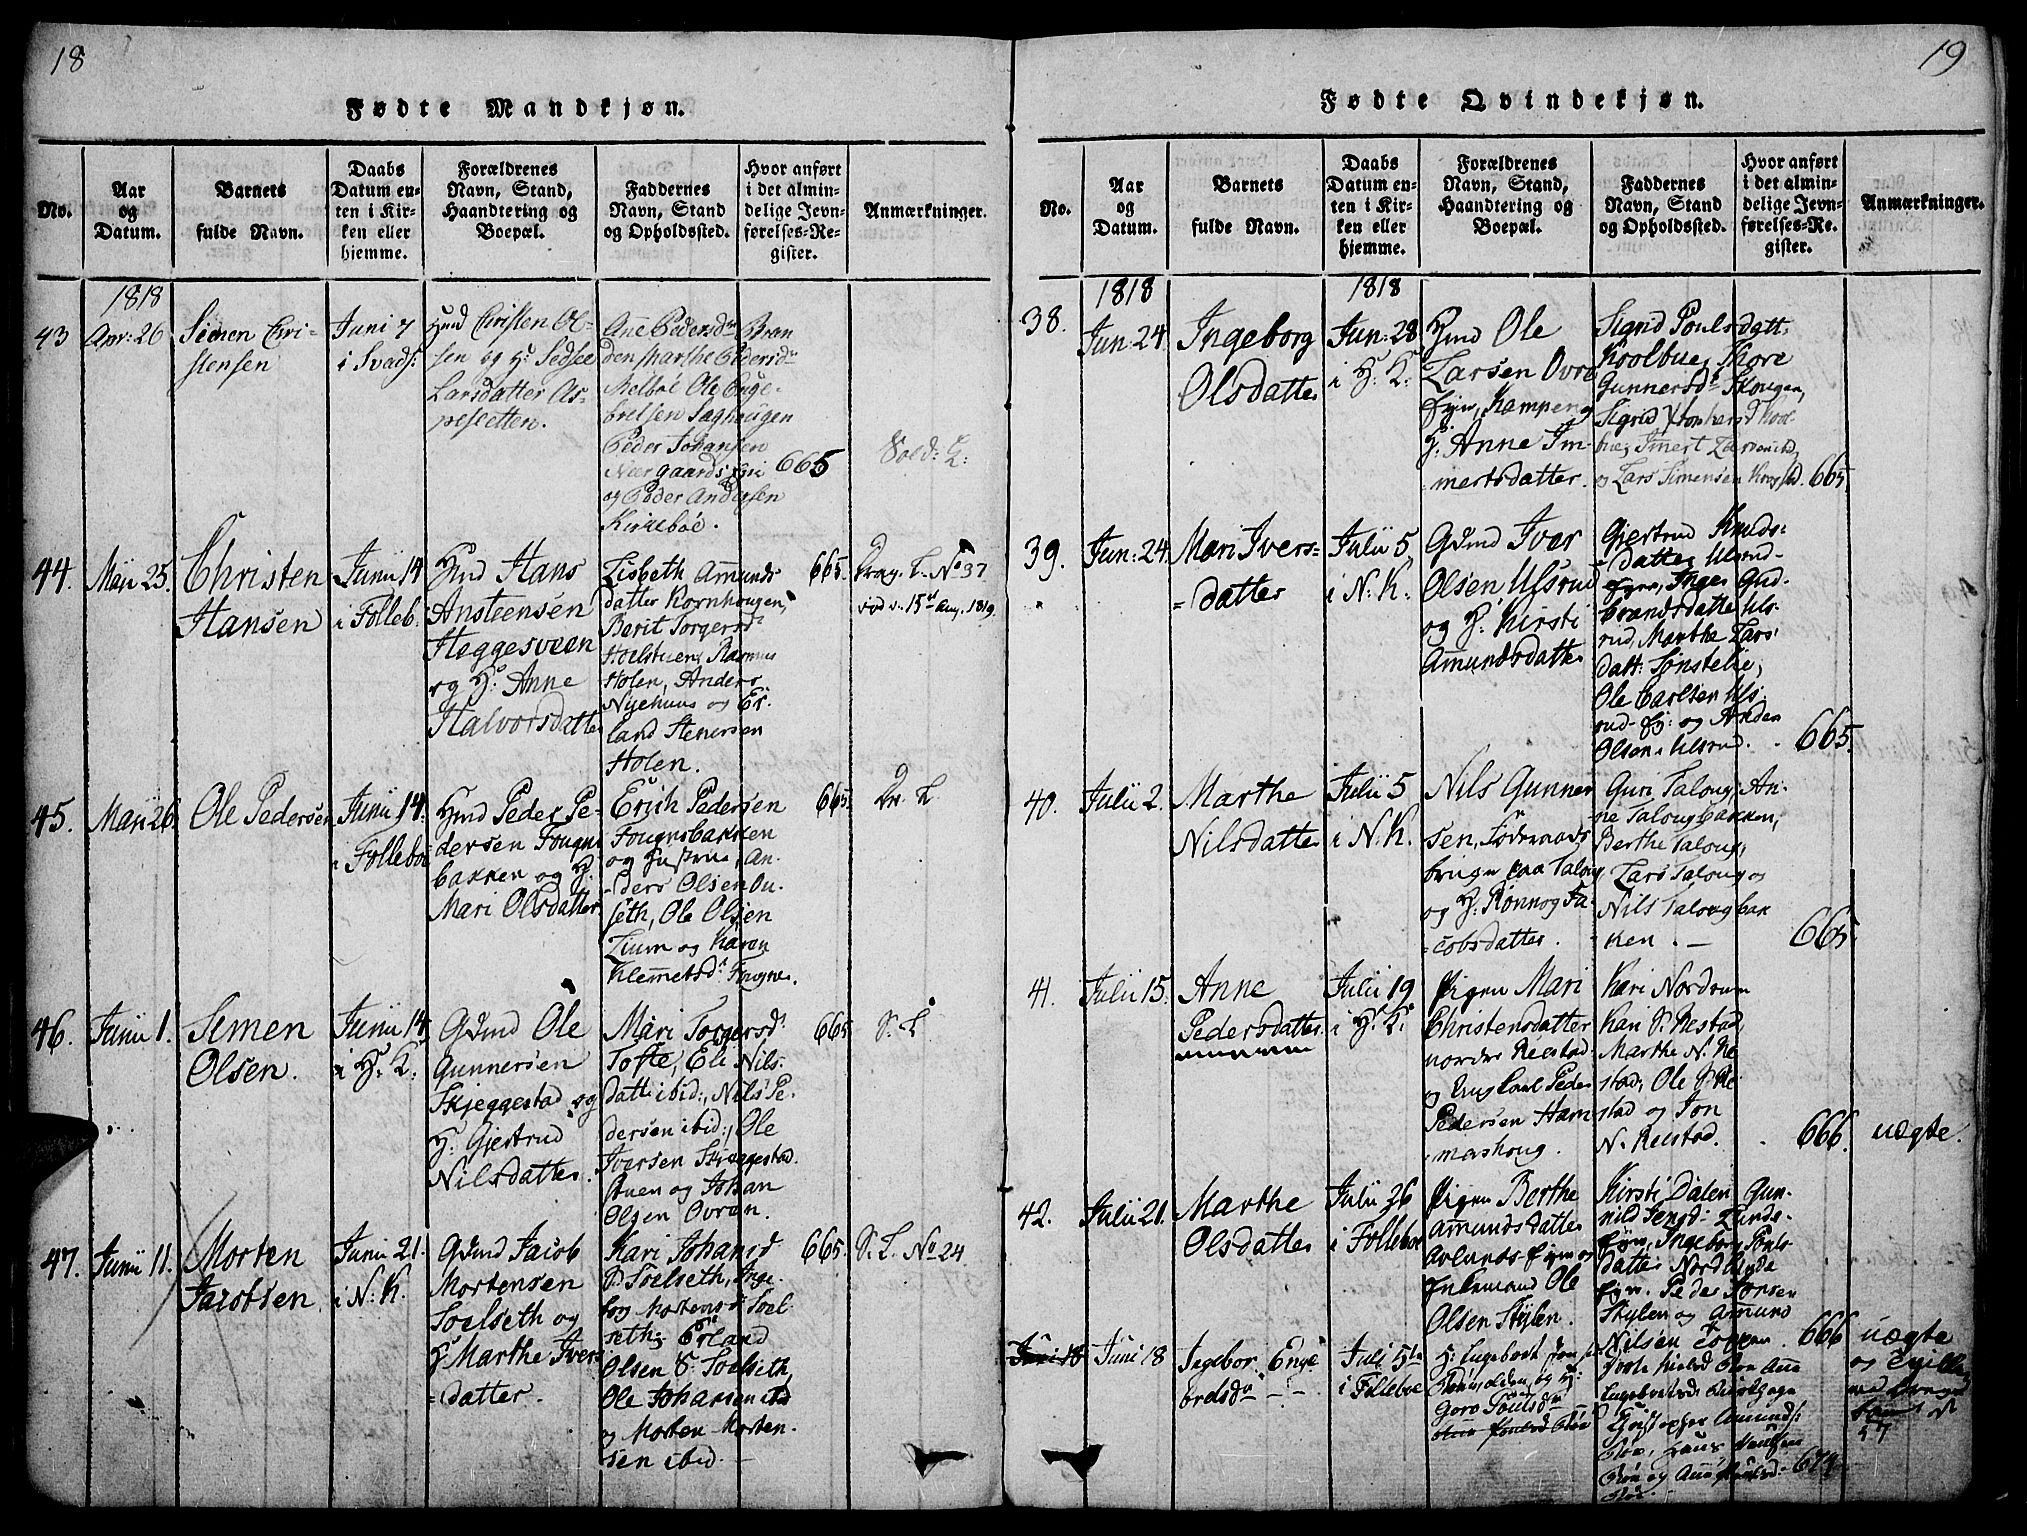 18
Fødte Mandkjøn.
No.
Aar
og
Datum.
Barnets
fulde Navn.
Daabs
Datum en-
ten i Kir-
ken eller
hjemme.
Forældrenes
Navn, Stand,
Haandtering og
Boepæl.
Faddernes
Navn, Stand
og Opholdssted.
Hvor anført
i det almin-
delige Jevn-
førelses-Re-
gister.
Anmærkninger.
1818
43
Apr: 26
Simen Chri-
stensen
Juni 7
i Svads:
Hmd Christen Ol-
sen og H: Sedsee
Larsdatter As-
pesletten.
Ane Pedersdr Bran
den Marthe Pedersdr
Melbøe Ole Enge-
bretsen Saghougen
Peder Johansen
Nærgaards
og Peder Andersen
Kirkebøe.
665
Sold: L:
44.
Maii 25.
Christen
Hansen
Junii 14
i Folleb:
Hmd Hans
Ansteensen
Heggesveen
og H: Anne
Halvorsdatter
Lisbeth Amunds
datter Kornhougen,
Berit Torgersdr
Holstuen, Rasmus
Holen, Anders
Nyehuus og Er-
land Stenersen
Holen.
665.
Drag. L. No 37
15de Aug. 1819.
45.
Maii 26.
Ole Pedersen
Junii 14.
i Folleboe
Hmd Peder Pe-
dersen Fougns
bakken og H:
Mari Olsdatter
Erich Pedersen
Fougnsbakken
og Hustrue, An-
ders Olsen Ou-
seth, Ole Olsen
Lium og Karen
Klemetsdr Fougne.
665.
Dr. L
46.
Junii 1.
Simen
Olsen.
Junii 14.
i H: K:
Gdmd Ole
Gunnersen
Skjeggestad og
H: Gjertrud
Nilsdatter.
Mari Torgersdr
Tofte, Eli Nils-
datt: ibid:, Nils Pe-
dersen ibid:, Ole
Iversen Skjeggestad-
stuen og Johan
Olsen Ovren.
665
S. L
47.
Junii 11.
Morten
Jacobsen
Junii 21.
i N: K.
Gdmd Jacob
Mortensen
Soelseth og
H: Marthe Ivers
=datter.
Kari Johansd
Soelseth, Inge-
borg Mortensdr Soel-
seth, Erland
Olsen S. Soelseth
Ole Johansen ibd
og Morten Morten-
sen ibid. —
665.
S. L. No 24
19
Fødte Qvindekjøn.
No.
Aar
og
Datum.
Barnets
fulde Navn.
Daabs
Datum en-
ten i Kir-
ken eller
hjemme.
Forældrenes
Navn, Stand,
Haandtering og
Boepæl.
Faddernes
Navn, Stand
og Opholdssted.
Hvor anført
i det almin-
delige Jevn-
førelses-Re-
gister.
Anmærkninger.
1818
1818
38.
Jun: 24
Ingeborg
Olsdatter
Jun: 28
i H: K:
Hmd Ole
Larsen Ovre
Ejen, Kampen og
H: Anne Im-
mertsdatter.
Sigrid Poulsdatt
Koolbue, Thore
Gunnersdr Skougen,
Sigrid
bue, Imert
og Lars Simensen
665.
39.
Jun: 24.
Mari Ivers=
=datter
Julii 5
i N: K.
Gdmd Ivar
Olsen Ulsrud
og H: Kirsti
Amundsdatter
Gjertrud Knuds-
datter Ulsrud-
ejen, Inger Gud-
brandsdatter Uls-
rud, Marthe Lars-
datt: Sønstelie,
Ole Carlsen Uls-
rud-Ej: og Anden
Olsen Ulsrud.
665.
40.
Julii 2.
Marthe
Nilsdatter
Julii 5
i N: K.
Nils Gunner
sen, Føderaads
bruger paa Taloug
og H: Rønnog Ja-
=cobsdatter.
Guri Taloug, An-
ne Talougbakken,
Berthe Taloug,
Lars Taloug og
Nils Talougbak
ken. —
665.
41.
Julii 15.
Anne
Pedersdatter
Julii 19
i H: K:
Pigen Mari
Christensdatter
nordre Reistad
og Ungkarl Peder
Pedersen Ham
=marshoug.
Kari Nordrum
Kari S. Restad,
Marthe N. Re
stad, Ole S. Re
stad og Jon
N. Reistad.
666
uægte.
42.
Julii 21.
Marthe
Olsdatter
Julii 26
i Folleboe
Pigen Berthe
Amundsdatter
Avlunds Ejen og
Enkemand Ole
Olsen Skylen.
Kirsti Dalen Gun-
nild Jensd: Lunds-
ejen, Ingeborg Pouls-
datter Nordlunde
Ejen, Peder Jonsen
Skylen og Amund
Nilsen
666
uægte
Juni 18
Juni 18
Ingebor Enge
bredsdr — —
Juli 5te
i Folleboe
H: Engebret
og H:
Goro Poulsdr
Christopher Amunds:
674
og
57